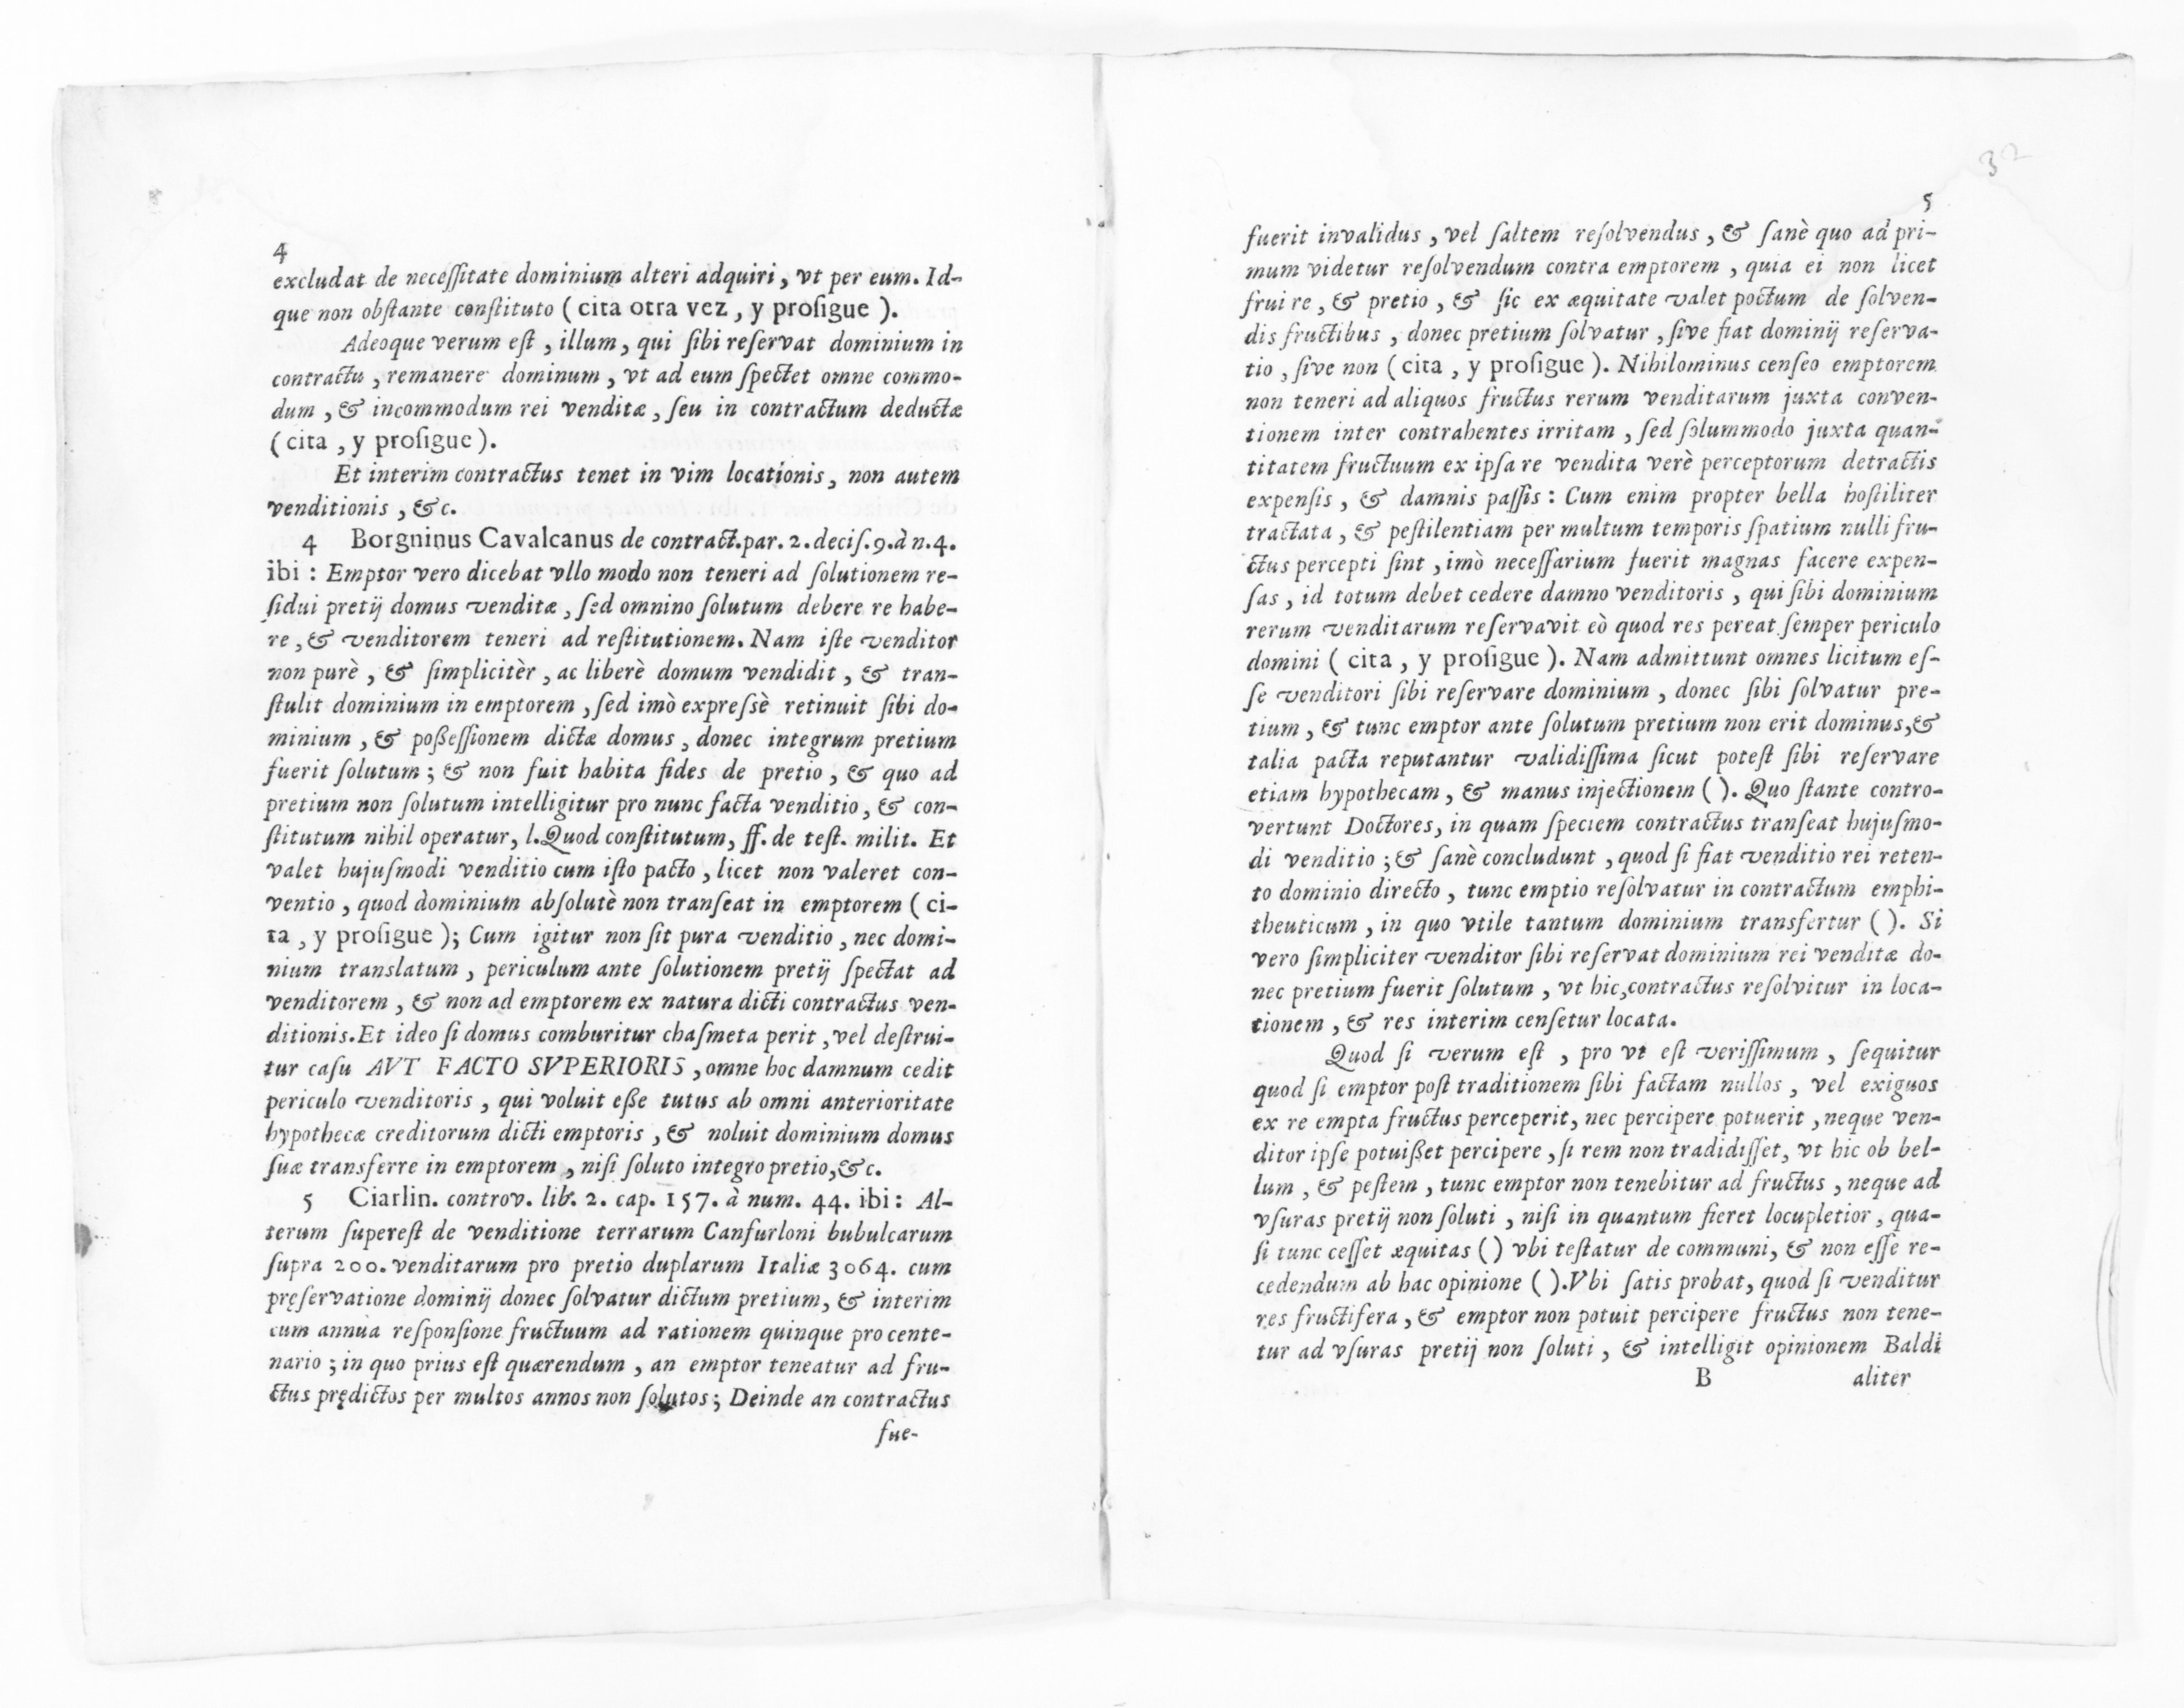 4
excludat de neceſſitate dominium alteri adquiri, vt per eum. Id-
que non obſtante conſtituto ( cita otra vez, y proſigue ).
Adeoque verum eſt, illum, qui ſibi reſervat dominium in
contractu, remanere dominum, vt ad eum ſpectet omne commo-
dum, & incommodum rei venditæ, ſeu in contractum deductæ
( cita, y proſigue ).
Et interim contractus tenet in vim locationis, non autem
venditionis, &c.
4 Borgninus Cavalcanus de contract. par. 2. deciſ. 9. à n. 4.
ibi: Emptor vero dicebat vllo modo non teneri ad ſolutionem re-
ſidui pretij domus venditæ, ſed omnino ſolutum debere re habe-
re, & venditorem teneri ad reſtitutionem. Nam iſte venditor
non purè, & ſimplicitèr, ac liberè domum vendidit, & tran-
ſtulit dominium in emptorem, ſed imò expreſsè retinuit ſibi do-
minium, & poßeſſionem dictæ domus, donec integrum pretium
fuerit ſolutum; & non fuit habita fides de pretio, & quo ad
pretium non ſolutum intelligitur pro nunc facta venditio, & con-
ſtitutum nihil operatur, l. Quod conſtitutum, ff. de teſt. milit. Et
valet hujuſmodi venditio cum iſto pacto, licet non valeret con-
ventio, quod dominium abſolutè non tranſeat in emptorem ( ci-
ta, y proſigue ); Cum igitur non ſit pura venditio, nec domi-
nium translatum, periculum ante ſolutionem pretij ſpectat ad
venditorem, & non ad emptorem ex natura dicti contractus ven-
ditionis. Et ideo ſi domus comburitur chaſmeta perit, vel deſtrui-
tur caſu AVT FACTO SVPERIORIS, omne hoc damnum cedit
periculo venditoris, qui voluit eße tutus ab omni anterioritate
hypothecæ creditorum dicti emptoris, & noluit dominium domus
ſuæ transferre in emptorem, niſi ſoluto integro pretio, &c.
5 Ciarlin. controv. lib. 2. cap. 157. à num. 44. ibi: Al-
terum ſupereſt de venditione terrarum Canfurloni bubulcarum
ſupra 200. venditarum pro pretio duplarum Italiæ 3064. cum
pręſervatione dominij donec ſolvatur dictum pretium, & interim
cum annua reſponſione fructuum ad rationem quinque pro cente-
nario; in quo prius eſt quærendum, an emptor teneatur ad fru-
ctus prędictos per multos annos non ſolutos; Deinde an contractus
fue-
32
5
fuerit invalidus, vel ſaltem reſolvendus, & ſanè quo ad pri-
mum videtur reſolvendum contra emptorem, quia ei non licet
frui re, & pretio, & ſic ex æquitate valet poctum de ſolven-
dis fructibus, donec pretium ſolvatur, ſive fiat dominij reſerva-
tio, ſive non ( cita, y proſigue ). Nihilominus cenſeo emptorem
non teneri ad aliquos fructus rerum venditarum juxta conven-
tionem inter contrahentes irritam, ſed ſolummodo juxta quan-
titatem fructuum ex ipſa re vendita verè perceptorum detractis
expenſis, & damnis paſſis: Cum enim propter bella hoſtiliter
tractata, & peſtilentiam per multum temporis ſpatium nulli fru-
ctus percepti ſint, imò neceſſarium fuerit magnas facere expen-
ſas, id totum debet cedere damno venditoris, qui ſibi dominium
rerum venditarum reſervavit eò quod res pereat ſemper periculo
domini ( cita, y proſigue ). Nam admittunt omnes licitum eſ-
ſe venditori ſibi reſervare dominium, donec ſibi ſolvatur pre-
tium, & tunc emptor ante ſolutum pretium non erit dominus, &
talia pacta reputantur validiſſima ſicut poteſt ſibi reſervare
etiam hypothecam, & manus injectionem ( ). Quo ſtante contro-
vertunt Doctores, in quam ſpeciem contractus tranſeat hujuſmo-
di venditio; & ſanè concludunt, quod ſi fiat venditio rei reten-
to dominio directo, tunc emptio reſolvatur in contractum emphi-
theuticum, in quo vtile tantum dominium transfertur ( ). Si
vero ſimpliciter venditor ſibi reſervat dominium rei venditæ do-
nec pretium fuerit ſolutum, vt hic, contractus reſolvitur in loca-
tionem, & res interim cenſetur locata.
Quod ſi verum eſt, pro vt eſt veriſſimum, ſequitur
quod ſi emptor poſt traditionem ſibi factam nullos, vel exiguos
ex re empta fructus perceperit, nec percipere potuerit, neque ven-
ditor ipſe potuißet percipere, ſi rem non tradidiſſet, vt hic ob bel-
lum, & peſtem, tunc emptor non tenebitur ad fructus, neque ad
vſuras pretij non ſoluti, niſi in quantum fieret locupletior, qua-
ſi tunc ceſſet æquitas ( ) vbi teſtatur de communi, & non eſſe re-
cedendum ab hac opinione ( ). Vbi ſatis probat, quod ſi venditur
res fructifera, & emptor non potuit percipere fructus non tene-
tur ad vſuras pretij non ſoluti, & intelligit opinionem Baldi
B aliter